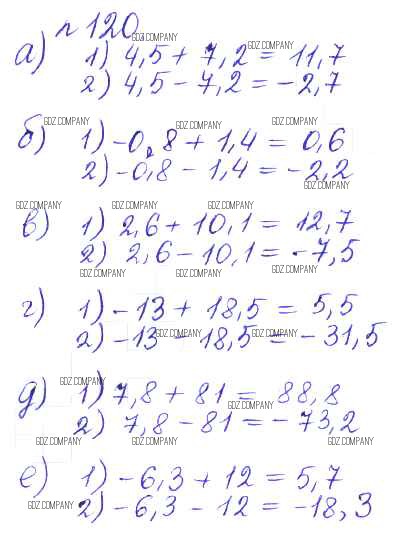 № 120
GDZ.COMPANY
GDZ.COMPANY
а) 1) 4,5 + 7,2 = 11,7
2) 4,5 - 7,2 = -2,7
GDZ.COMPANY GDZ.COMPANY GDZ.COMPANY
б) 1) -0,8 + 1,4 = 0,6
2) -0,8 - 1,4 = -2,2
GDZ.COMPANY
GDZ.COMPANY GDZ.COMPANY GDZ.COMPANY
в) 1) 2,6 + 10,1 = 12,7
2) 2,6 - 10,1 = -7,5
GDZ.COMPANY GDZ.COMPANY GDZ.COMPANY
г) 1) -13 + 18,5 = 5,5
2) -13 - 18,5 = -31,5
GDZ.COMPANY GDZ.COMPANY
GDZ.COMPANY
д) 1) 7,8 + 81 = 88,8
GDZ.COMPANY
2) 7,8 - 81 = -73,2
GDZ.COMPANY GDZ.COMPANY GDZ.COMPANY
е) 1) -6,3 + 12 = 5,7
2) -6,3 - 12 = -18,3
GDZ.COMPANY